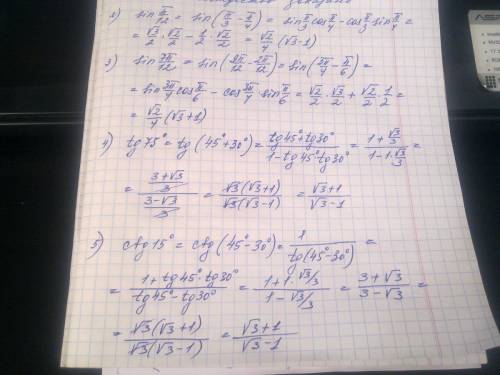 2) sin π/12 = sin(π/3 - π/4) = sin π/3 cos π/4 - cos π/3 sin π/4 =
= √3/2 · √2/2 - 1/2 · √2/2 = √2/4 (√3-1)
3) sin 7π/12 = sin(9π/12 - 2π/12) = sin(3π/4 - π/6) =
= sin 3π/4 cos π/6 - cos 3π/4 sin π/6 = √2/2 · √3/2 + √2/2 · 1/2 =
= √2/4 (√3+1)
4) tg 75° = tg(45°+30°) = (tg45°+tg30°)/(1-tg45°·tg30°) = (1+√3/3)/(1-1·√3/3) =
= ((3+√3)/3)/((3-√3)/3) = √3(√3+1)/√3(√3-1) = (√3+1)/(√3-1)
5) ctg 15° = ctg(45°-30°) = 1/tg(45°-30°) =
= (1+tg45°·tg30°)/(tg45°-tg30°) = (1+1·√3/3)/(1-√3/3) = (3+√3)/(3-√3) =
= √3(√3+1)/√3(√3-1) = (√3+1)/(√3-1)